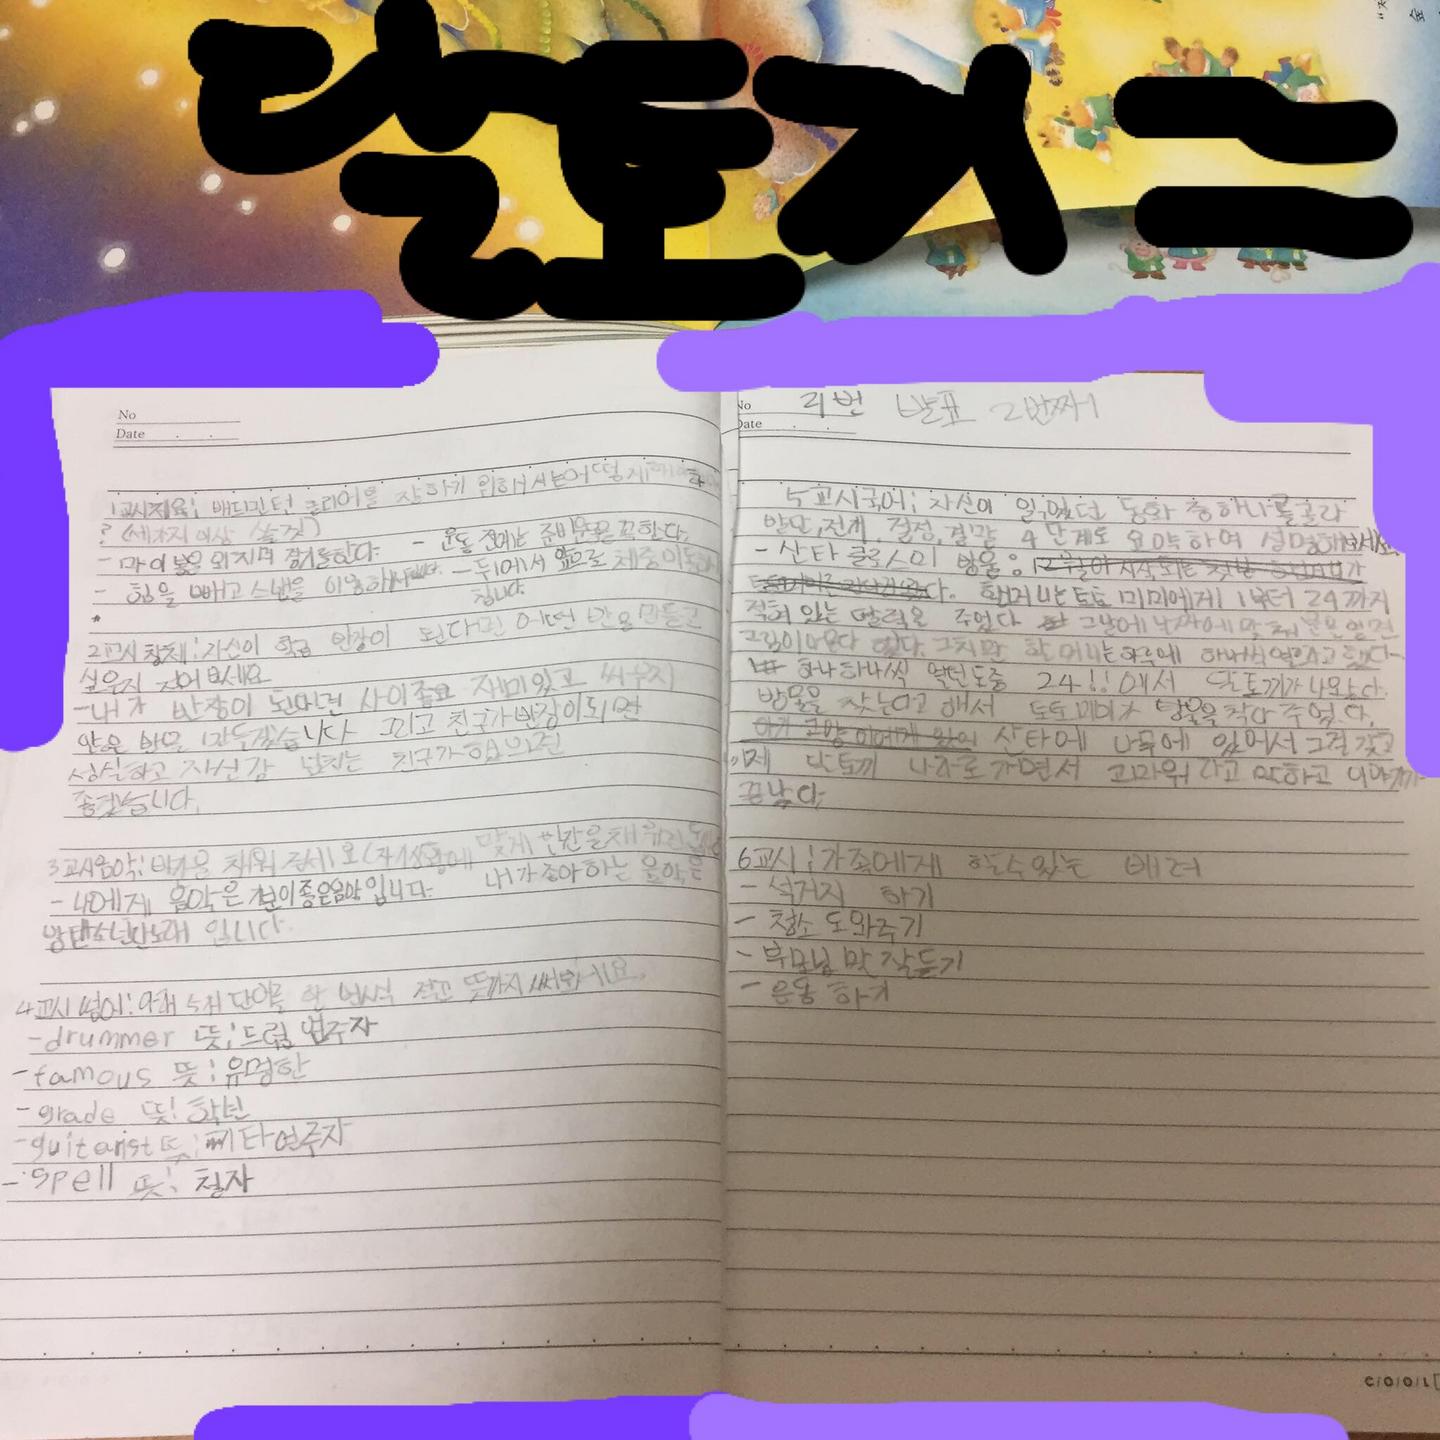 달토끼 =
No
Date
1교시체육: 배드민턴 클리어를 잘하기 위해서는 어떻게
? (세가지 이상 쓸것)
- 운동 전에는 준비운동을 꼭 한다.
- 뒤에서 앞으로 체중이동
- 힘을 빼고 스냅을 이용해서 칩니다.
*
2교시 창체: 자신이 학급 반장이 된다면 어떤 반을 만들고
싶은지 적어보세요
-내가 반장이 된다면 사이좋고 재미있고 싸우지
않은 반을 만들겠습니다 그리고 친구가 반장이 되면
성실하고 자신감 넘치는 친구가 했으면
좋겠습니다.
3교시음악: 빈칸을채
- 나에게 음악은 기분이좋은음악 입니다. 내가 좋아하는 음악은
방탄소년단노래 입니다.
4교시 영어: 아래 5개 단어를 한 번씩 적고 뜻까지 써보세요.
-drummer 뜻: 드럼 연주자
-famous 뜻: 유명한
-grade 뜻: 학년
-guitarist 뜻: 기타연주자
-spell 뜻: 철자
No 리번 발표 2번째
Date
5교시국어: 자신이 읽었던 동화 중 하나를골라
발단,전개, 절정,결말 4 단계로 요약하여 설명해보세요.
- 산타클로스의 방울:
할머니는 토토 미미에게 1부터 24까지
적혀 있는 달력을 주었다 그날에
그림이 나온다 했다. 그치만 할머니는하루에 하나씩 열라고 했다-
하나하나씩 열던도중 24!!에서 달토끼가 나왔다.
방울을 찾는다고 해서 토토 미미가 방울을 찾아 주었다.
산타에 나무에 있어서 그걸 갖고
이제 달토끼 나라로 가면서 고마워 라고 말하고 이야기가
끝났다.
6교시: 가족에게 할수있는 배려
- 설거지 하기
- 청소 도와주기
- 부모님 말 잘듣기
- 운동 하기